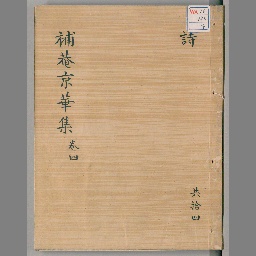 詩
補菴京華集 巻四
共拾四